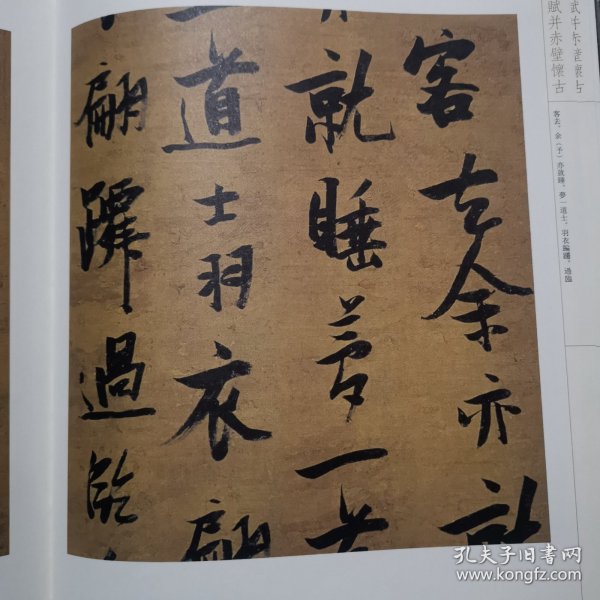 賦并赤壁懷古
客去，余（予）亦就睡。夢一道士，羽衣翩躚，過臨
客去余亦就
就睡夢一道
道士羽衣翩
翩躚過臨
孔夫子旧书网
www.kongfz.com